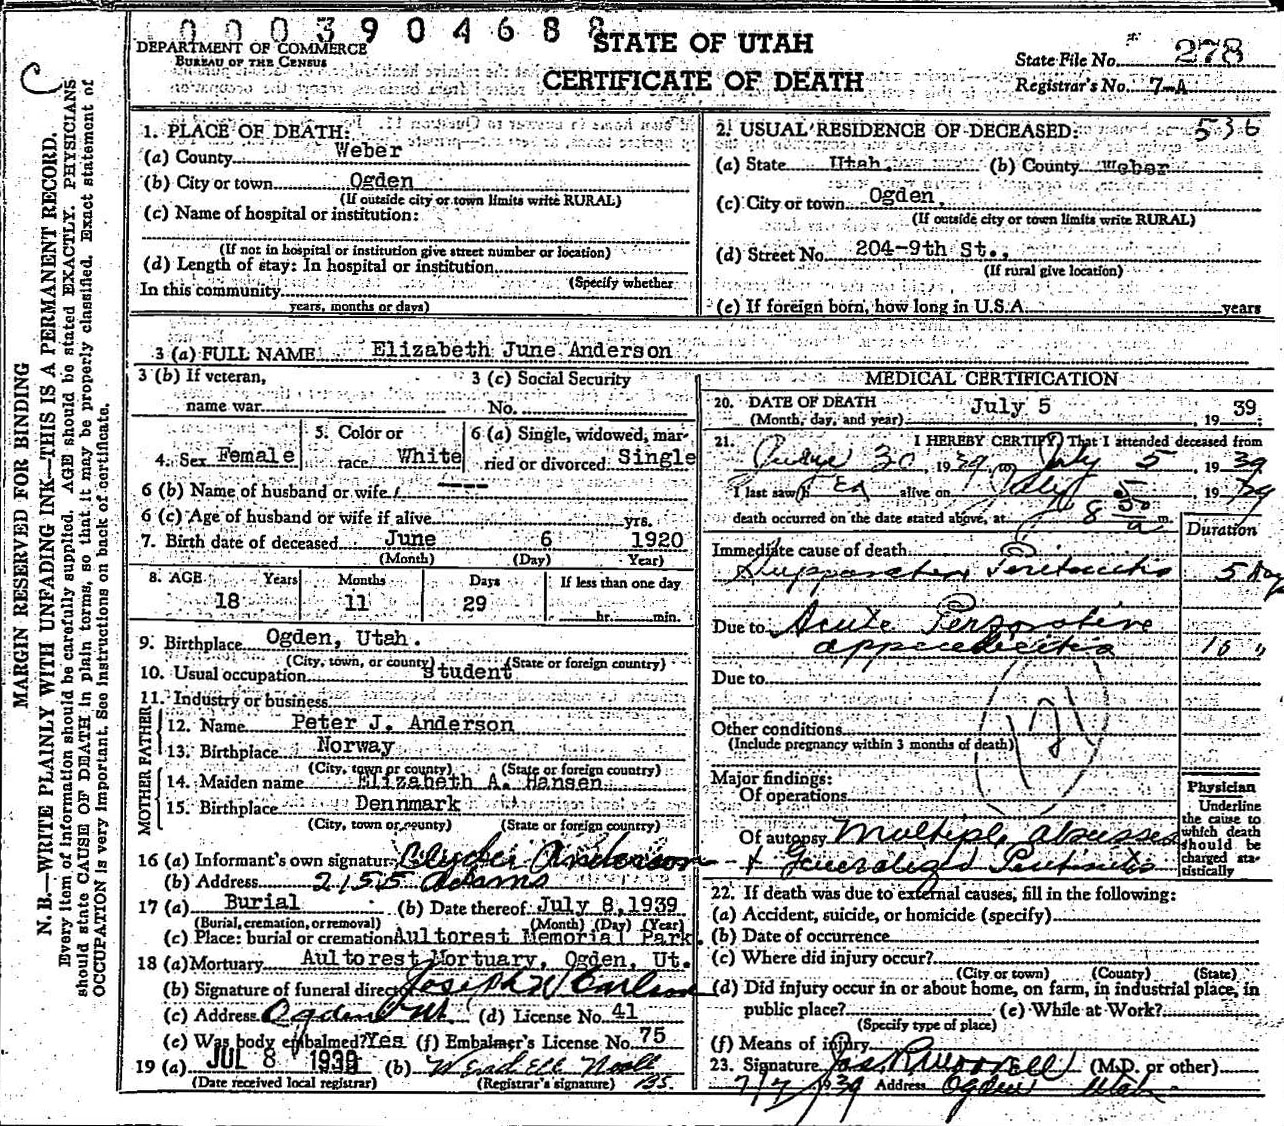 0003904688
DEPARTMENT OF COMMERCE
BUREAU OF THE CENSUS
STATE OF UTAH
CERTIFICATE OF DEATH
State File No. 278
Registrar's No. 7-A
C
MARGIN RESERVED FOR BINDING
N. B.—WRITE PLAINLY WITH UNFADING INK—THIS IS A PERMANENT RECORD.
Every item of information should be carefully supplied. AGE should be stated EXACTLY. PHYSICIANS
should state CAUSE OF DEATH in plain terms, so that it may be properly classified. Exact statement of
OCCUPATION is very important. See instructions on back of certificate.
1. PLACE OF DEATH:
(a) County Weber
(b) City or town Ogden
(If outside city or town limits write RURAL)
(c) Name of hospital or institution:
(If not in hospital or institution give street number or location)
(d) Length of stay: In hospital or institution
(Specify whether
In this community
years, months or days)
2. USUAL RESIDENCE OF DECEASED: 536
(a) State Utah (b) County Weber
(c) City or town Ogden,
(If outside city or town limits write RURAL)
(d) Street No. 204-9th St.,
(If rural give location)
(e) If foreign born, how long in U.S.A. years
3 (a) FULL NAME Elizabeth June Anderson
3 (b) If veteran,
name war
3 (c) Social Security
No.
4. Sex Female
5. Color or
race White
6 (a) Single, widowed, mar-
ried or divorced Single
6 (b) Name of husband or wife
6 (c) Age of husband or wife if alive yrs.
7. Birth date of deceased June 6 1920
(Month) (Day) Year)
8. AGE Years Months Days If less than one day
18 11 29 hr. min.
9. Birthplace Ogden, Utah.
(City, town, or county) (State or foreign country)
10. Usual occupation Student
11. Industry or business
FATHER
12. Name Peter J. Anderson
13. Birthplace Norway
(City, town or county) (State or foreign country)
MOTHER
14. Maiden name Elizabeth A. Hansen
15. Birthplace Dennmark
(City, town or county) (State or foreign country)
16 (a) Informant's own signatur Anderson
(b) Address 2155 Adams
17 (a) Burial (b) Date thereof July 8, 1939
(Burial, cremation, or removal) (Month) (Day) (Year)
(c) Place: burial or cremation Aultorest Memorial Park.
18 (a) Mortuary Aultorest Mortuary, Ogden, Ut.
(b) Signature of funeral director Joseph W Carlson
(c) Address Ogden Ut. (d) License No. 41
(e) Was body embalmed? Yes (f) Embalmer's License No. 75
19 (a) JUL 8 1939 (b) Wendell Noall
(Date received local registrar) (Registrar's signature) 135.
MEDICAL CERTIFICATION
20. DATE OF DEATH July 5 1939
(Month, day, and year)
21. I HEREBY CERTIFY, That I attended deceased from
30, 1939, to July 5 1939
I last saw h er alive on July 5 1939
death occurred on the date stated above, at 8 30 a m.
Duration
Immediate cause of death
Suppurative Peritonitis 5 days
Due to Acute Perforative
appendicitis 10 "
Due to
Other conditions
(Include pregnancy within 3 months of death)
121
Major findings:
Of operations
Of autopsy Multiple abscesses
+ Generalized Peritonitis
Physician
Underline
the cause to
which death
should be
charged sta-
tistically
22. If death was due to external causes, fill in the following:
(a) Accident, suicide, or homicide (specify)
(b) Date of occurrence
(c) Where did injury occur?
(City or town) (County) (State)
(d) Did injury occur in or about home, on farm, in industrial place, in
public place? (e) While at Work?
(Specify type of place)
(f) Means of injury
23. Signature Jos R Morrell (M.D. or other)
7/7/1939 Address Ogden Utah